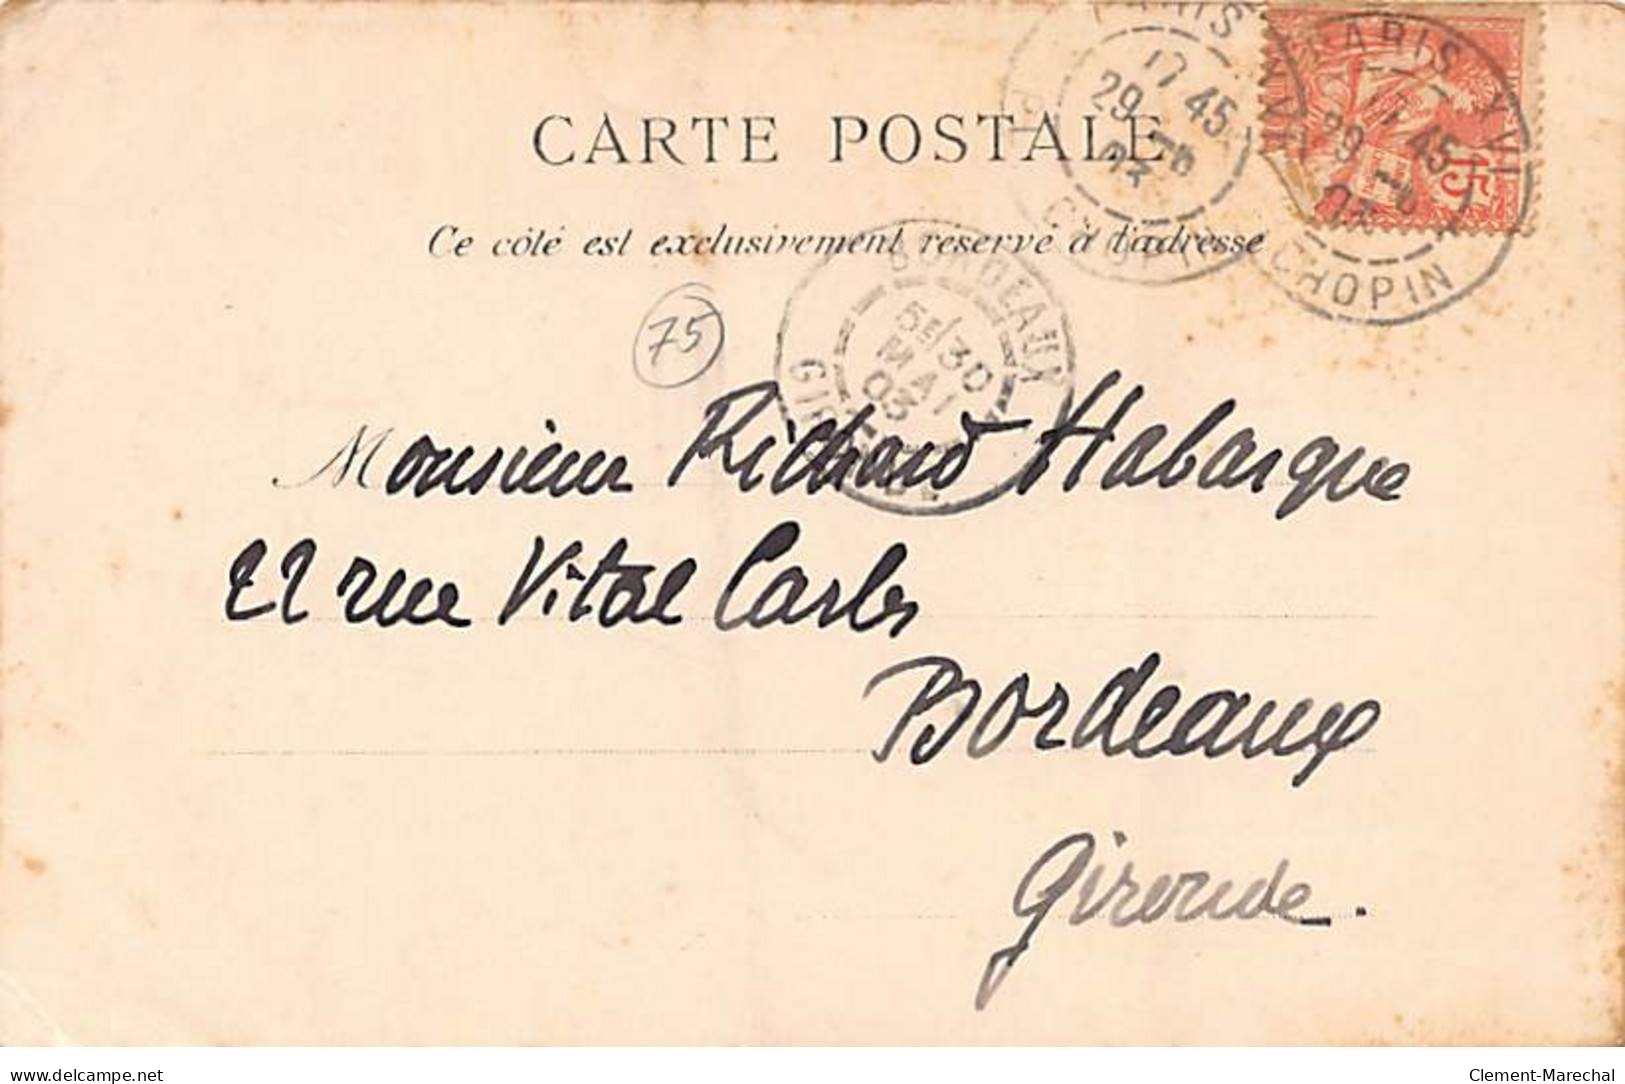 CARTE POSTALE
Ce côté est exclusivement réservé à l'adresse
PARIS XVI
17 45
29 -5
03
PL. CHOPIN
PARIS XVI
17 45
29 -5
03
CHOPIN
15
75
BORDEAUX
5E/30
MAI
03
GIRONDE
Monsieur Richard Habasque
22 rue Vital Carles
Bordeaux
Gironde.
delcampe.net
Clement-Marechal